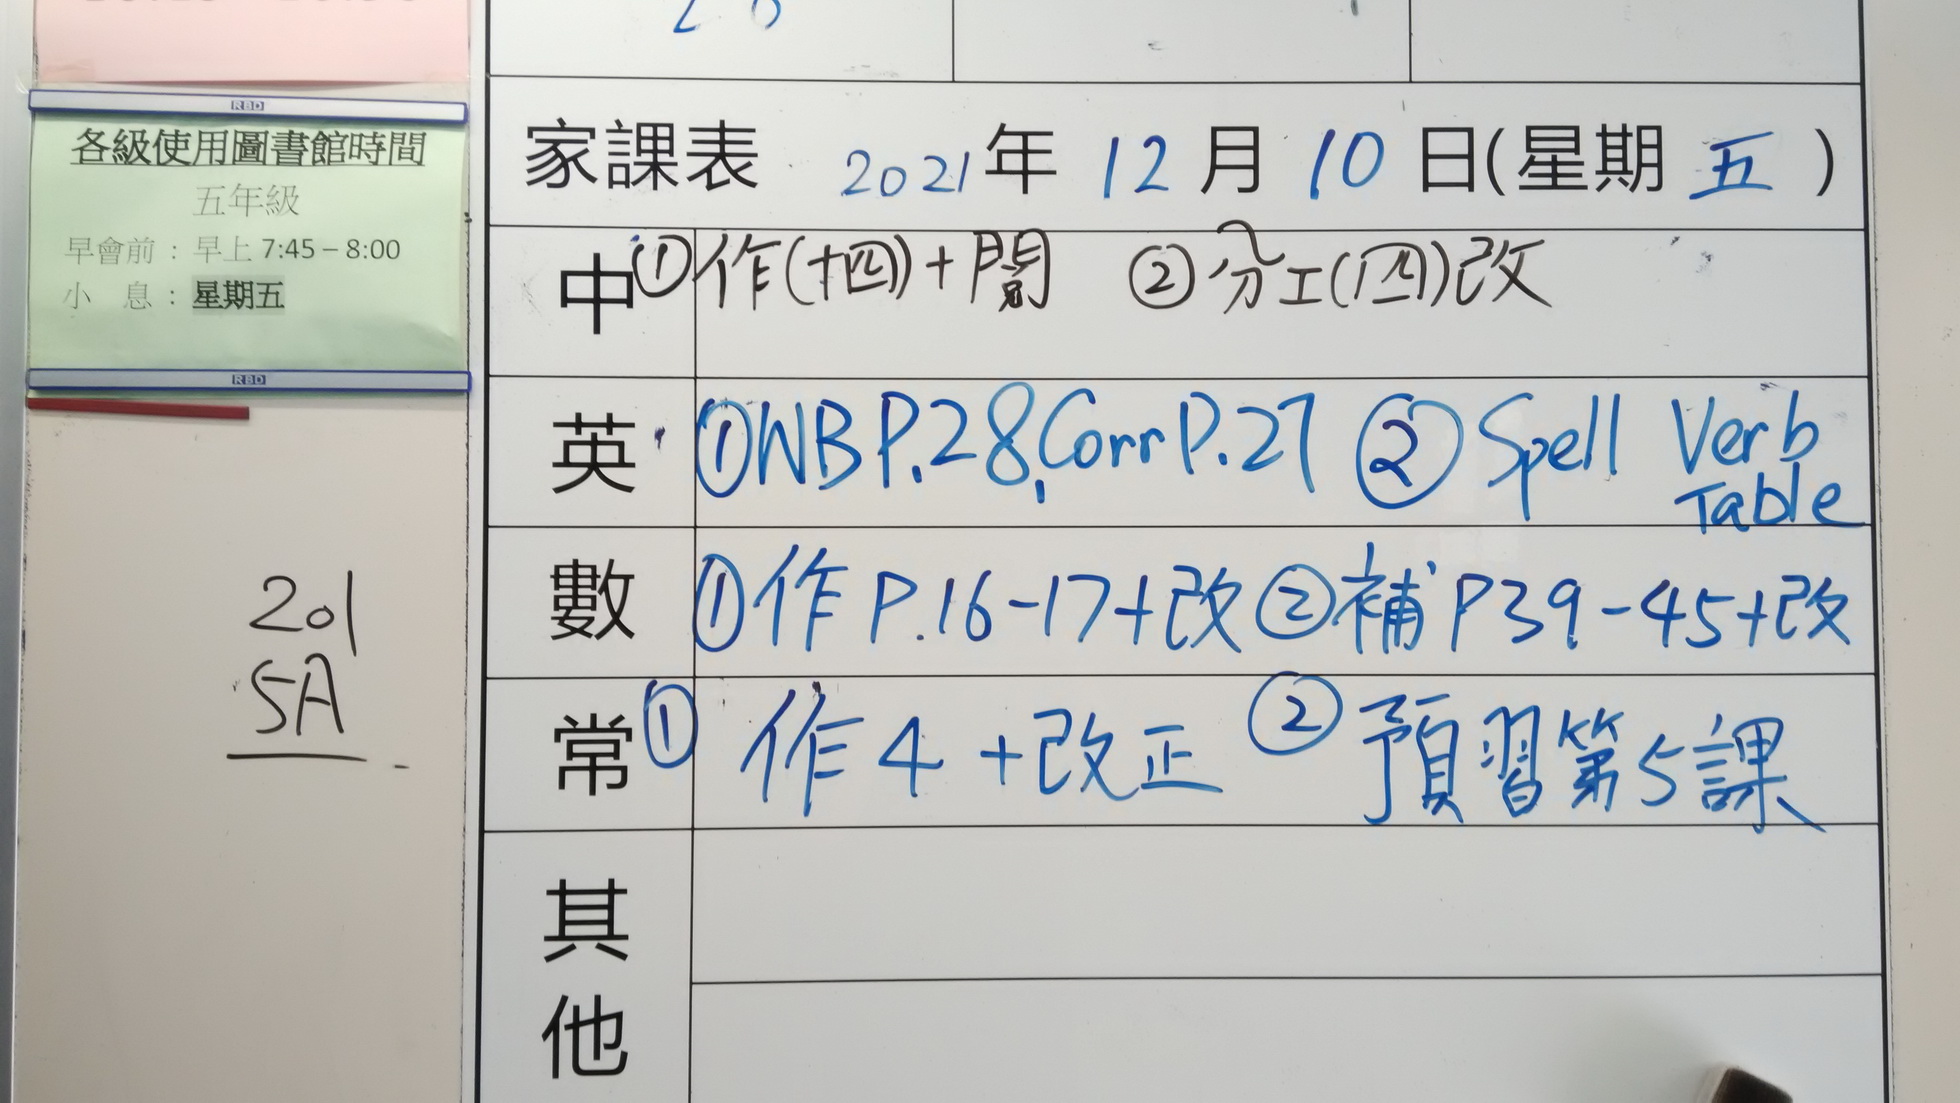 RBD
各級使用圖書館時間
五年級
早會前：早上 7:45 – 8:00
小 息：星期五
RBD
201
5A
家課表 2021年 12月 10日(星期五)
中 ①作(十四)+閱 ②分工(四)改
英 ①WB P.28, Corr P.27 ② Spell Verb
Table
數 ①作 P.16-17+改 ②補 P39-45+改
常 ① 作4 +改正 ② 預習第5課
其
他